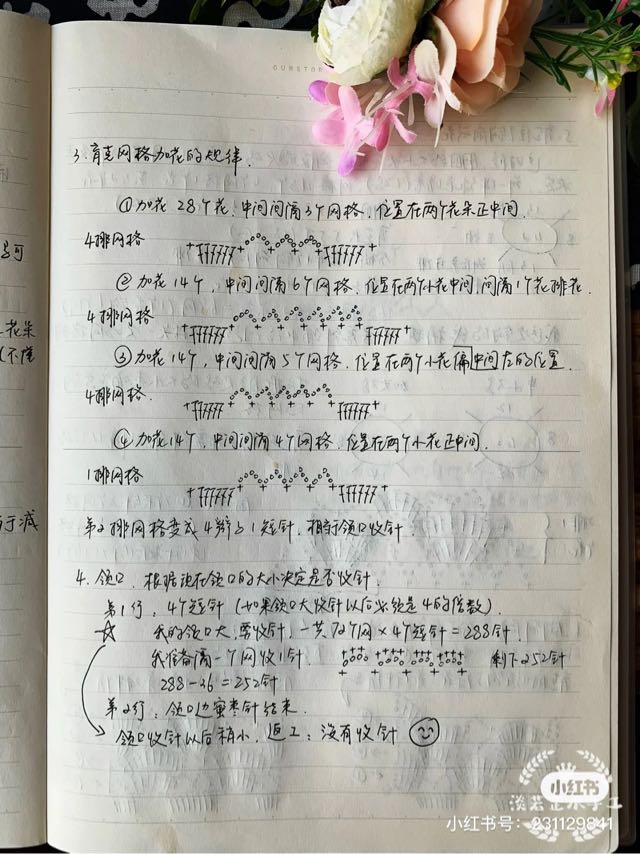 OURSTOR
3. 育克网格加花的规律.
①加花28个花. 中间间隔3个网格. 位置在两个花朵正中间.
4排网格
②加花14个, 中间间隔6个网格. 位置在两个小花中间, 间隔1个花排花.
4排网格
③加花14个, 中间间隔5个网格. 位置在两个小花偏中间左的位置.
4排网格.
④加花14个, 中间间隔4个网格. 位置在两个小花正中间.
1排网格
第2排网格变成4辫上1短针, 相当于领口收针.
4. 领口. 根据现在领口的大小决定是否收针.
第1行, 4个短针 (如果领口大收针以后必须是4的倍数).
☆ 我的领口大, 要收针, 一共72个网×4个短针=288针.
我准备隔一个网收1针. 剩下252针
288-36=252针
第2行: 领口边蜜枣针结束.
领口收针以后稍小, 返工: 没有收针
号可
花朵
(不懂
于减
小红书
小红书号: 231129841